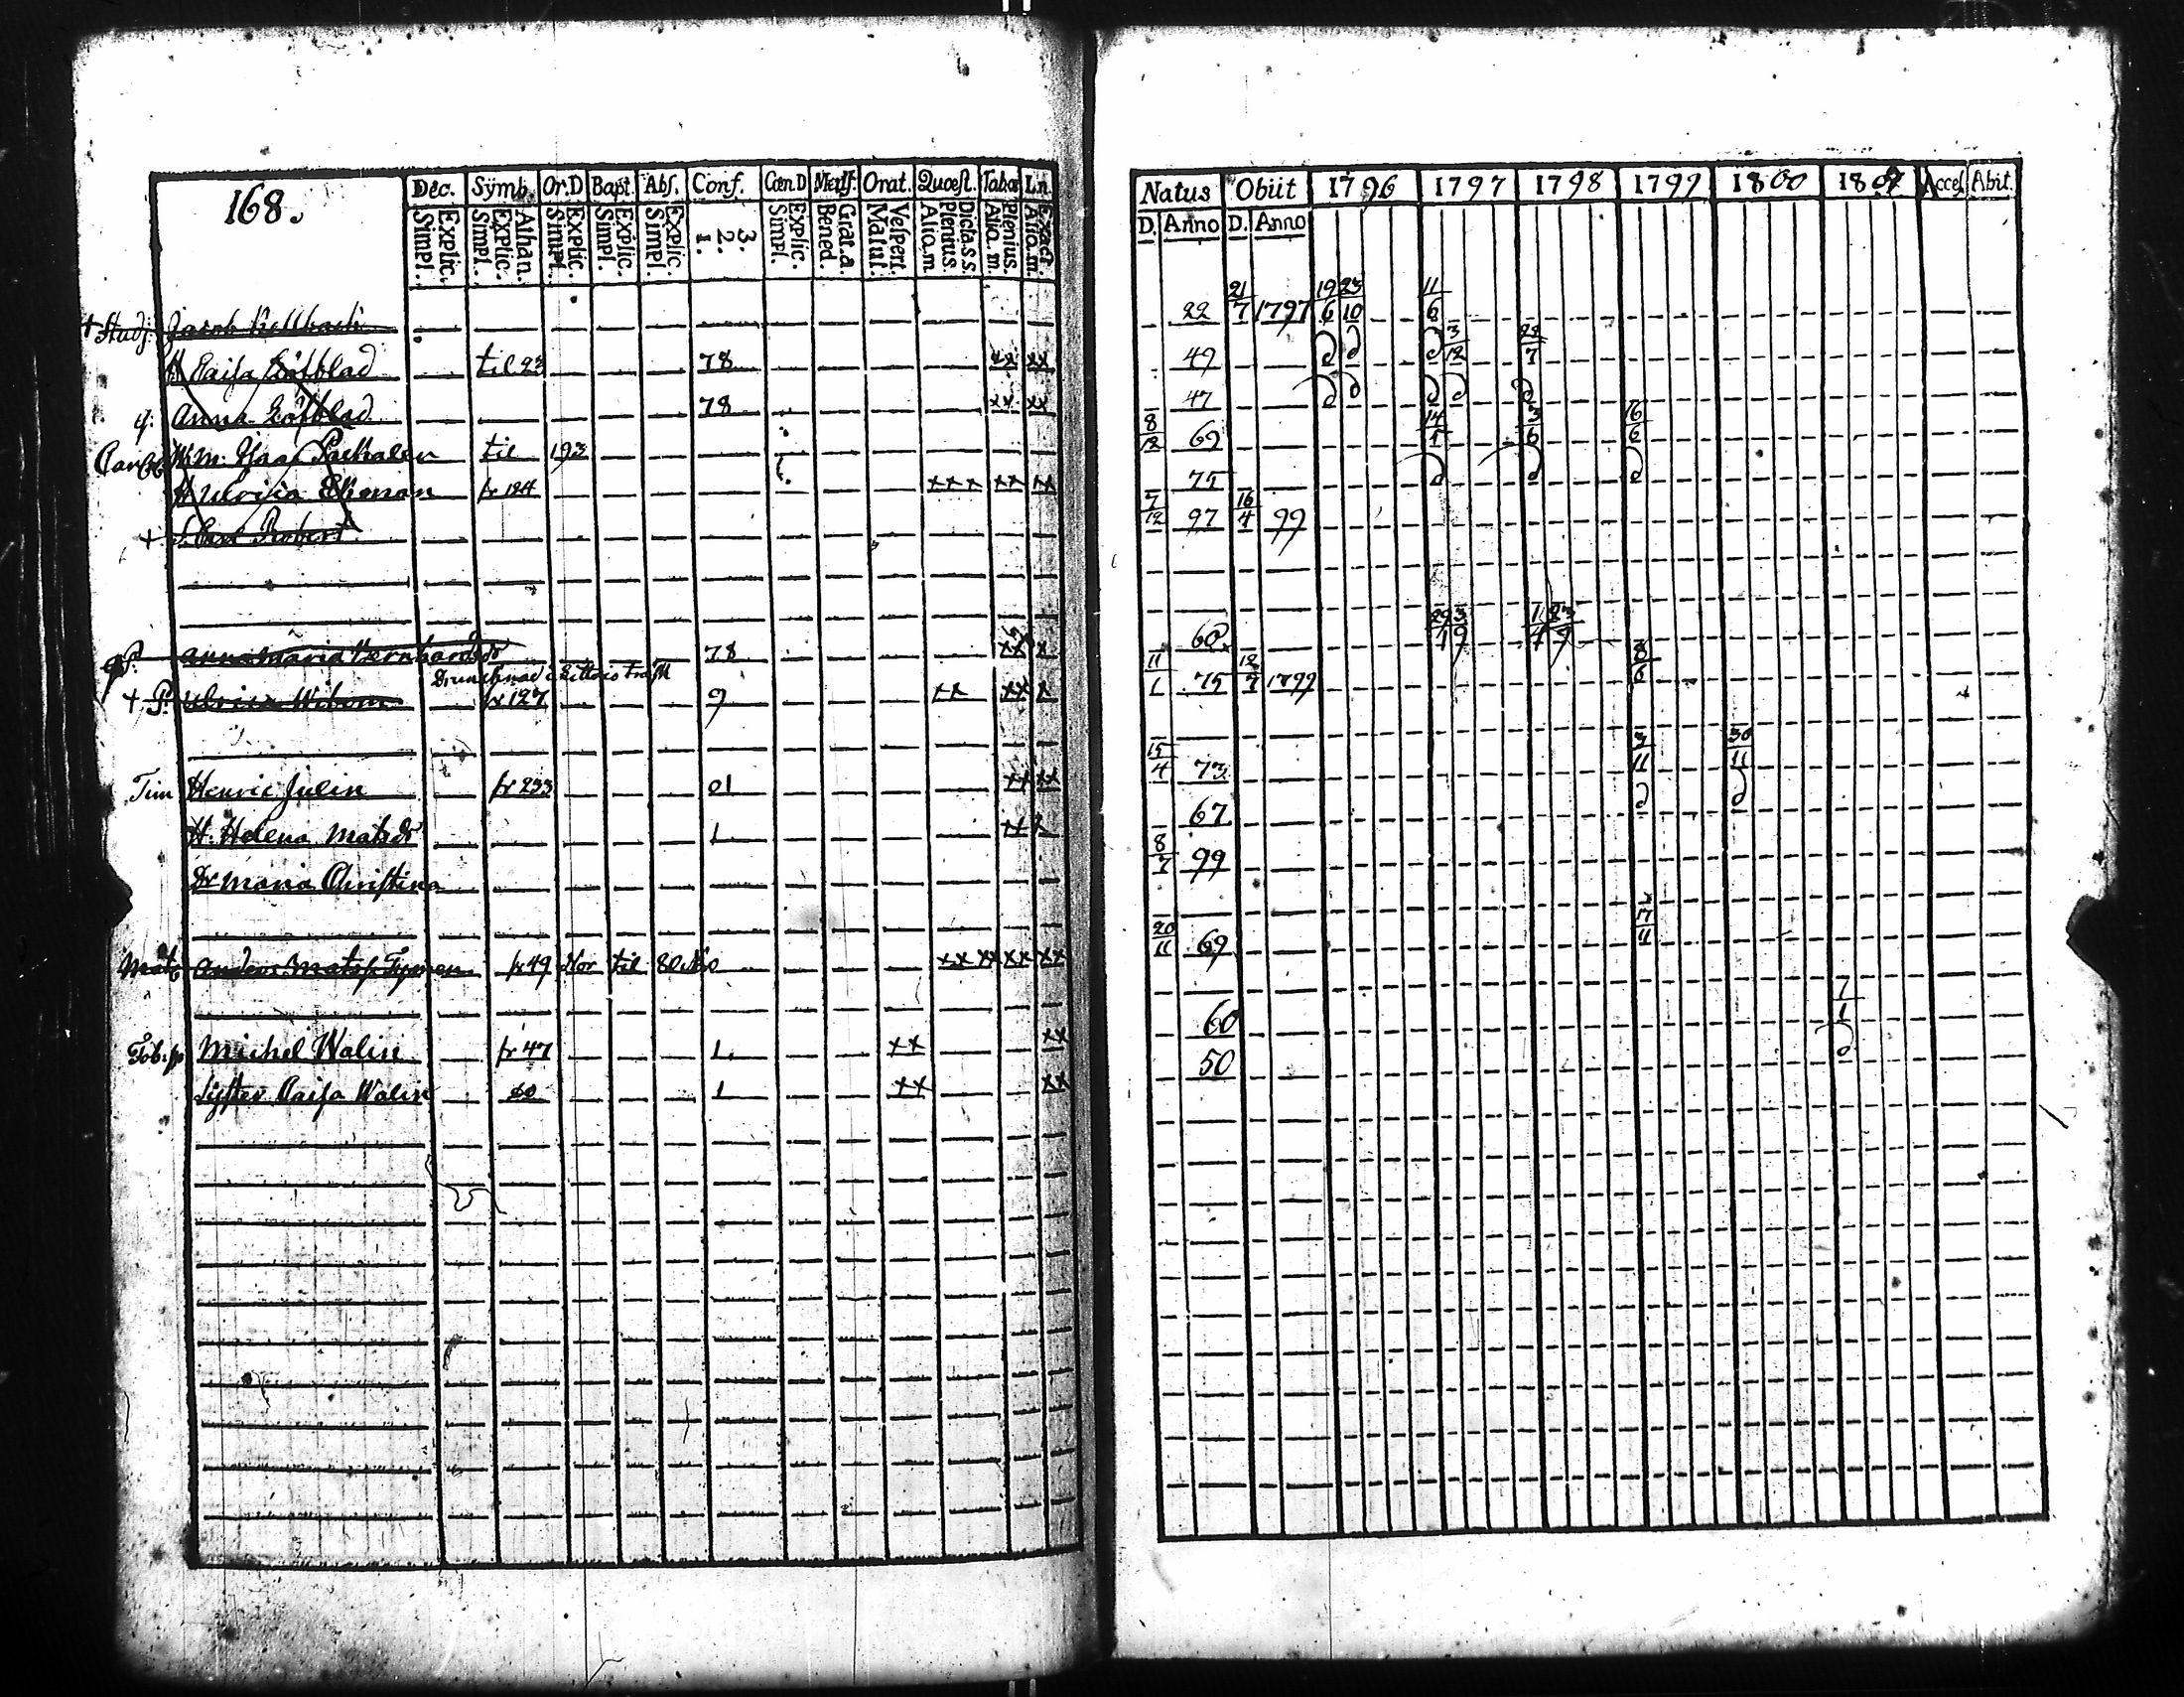 168. Dec. Symb. Or.D Bapt. Abs. Conf. Cœn.D Mens. Orat. Quæst. Tabæ L.n.
Simpl. Explic. Simpl. Explic. Athan. Simpl. Explic. Simpl. Explic. Simpl. Explic. 1. 2. 3. Simpl. Explic. Bened. Grat.a. Matut. Vespert. Aliq.m Plenius Dicta.s.s. Aliq.m Plenius. Aliq.m. Exact
+ Stud: Jacob
H Caisa Löfblad til 23 78 xx xx
q: Anna Löfblad 78 xx xx
W.M. til 193
H Ulrica Ekman fr 124 xxx xx xx
+ S. Carl Robert
Anna Maria Bernhardsdr 78 xx x
Drunknad i
+ P. Ulrica Wibom fr 127 9 xx xx x
Tim Henric Julin fr 233 01 xx xx
H. Helena Matsdr 1 xx x
Dr Maria Christina
Anders Matss. fr 49 Hor til 80 No xx xx xx xx
Michel Walin fr 47 1. xx xx
Syster Caisa Walin do 1 xx xx
Natus Obiit 1796 1797 1798 1799 1800 1802 Acces. Abit.
D. Anno D. Anno
22 21/7 1797 19/6 23/10 11/6
49 3/12 22/7
47
8/12 69 14/1 3/6 16/6
75
7/12 97 16/4 99
60 29/1 3/9 1/4 23/9
11/1 75 12/7 1799 8/6
15/4 73 3/11 30/11
67
8/7 99
20/11 69 17/11
60 7/1
50